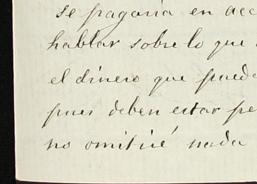 se pagaria en acc
hablar sobre lo que
el dinero que pueda
pues deben estar pe
no omitiré nada